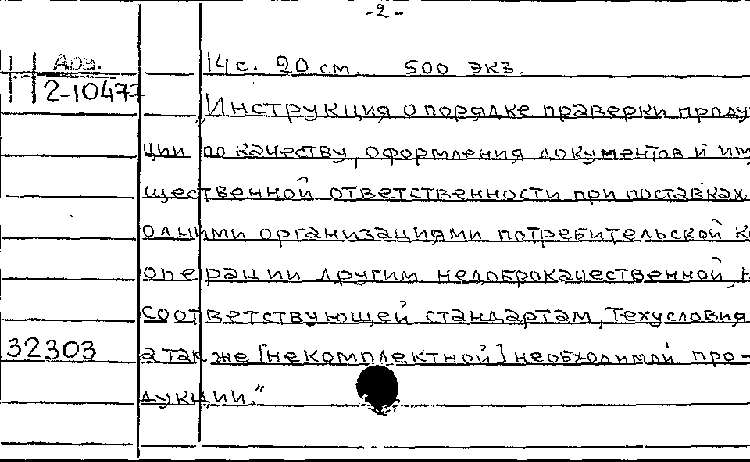 -2-
14с. 20 см. 500 экз.
2-10477
Инструкция о порядке праверки проду
ции по качеству, оформления документов и им
щественной ответственности при поставках
одними организациями потребительской к
операции другим недоброкачественной, н
соответствующей стандартам, Техусловия
32303 а также [некомплектной] необходимой про-
дукции."